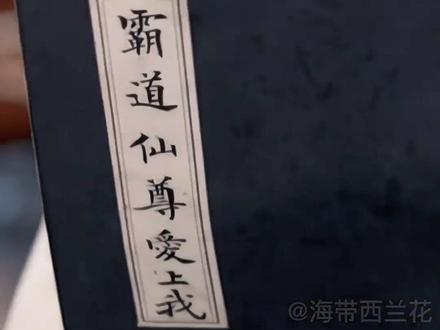 霸道仙尊愛上我
@海带西兰花